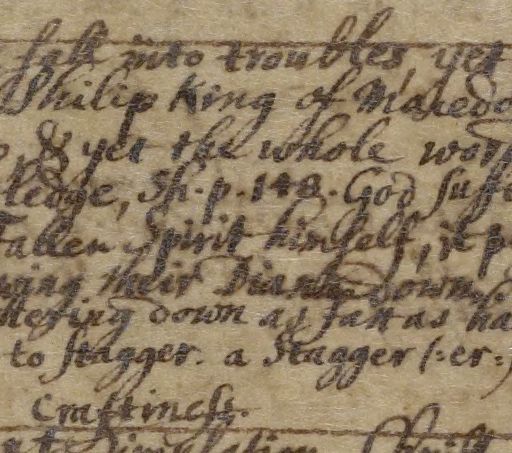 fall into troubles, yet
Philip King of Macedo
& yet the whole wor
ledge, Sh. p. 148. God suffe
Fallen Spirit himself, it p
wing their Diana down.
ttering down as fast as ha
to stagger. a Stagger (:er:)
Craftiness.
at Dissimulation. Christ